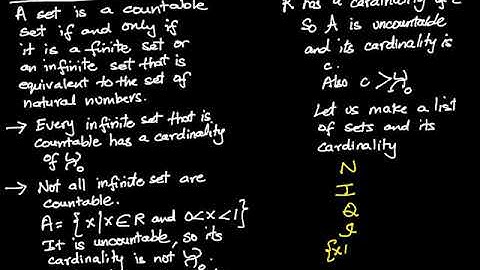 A set is a countable
set if and only if
it is a finite set or
an infinite set that is
equivalent to the set of
natural numbers.
→ Every infinite set that is
countable has a cardinality
of ℵ₀
→ Not all infinite set are
countable.
A = {x|x∈R and 0<x<1}
It is uncountable, so its
cardinality is not ℵ₀
So A is uncountable
and its cardinality is
c.
Also c > ℵ₀
Let us make a list
of sets and its
cardinality
N
I
Q
{x|